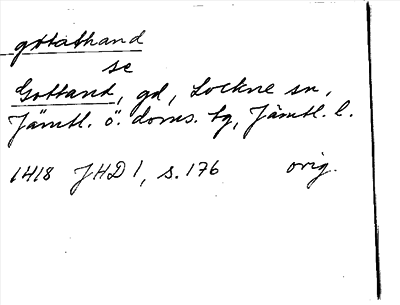 gotathand
se
Gottand, gd, Lockne sn,
Jämtl. ö. doms. tg, Jämtl. l.
1418 JHD 1, s. 176 orig.